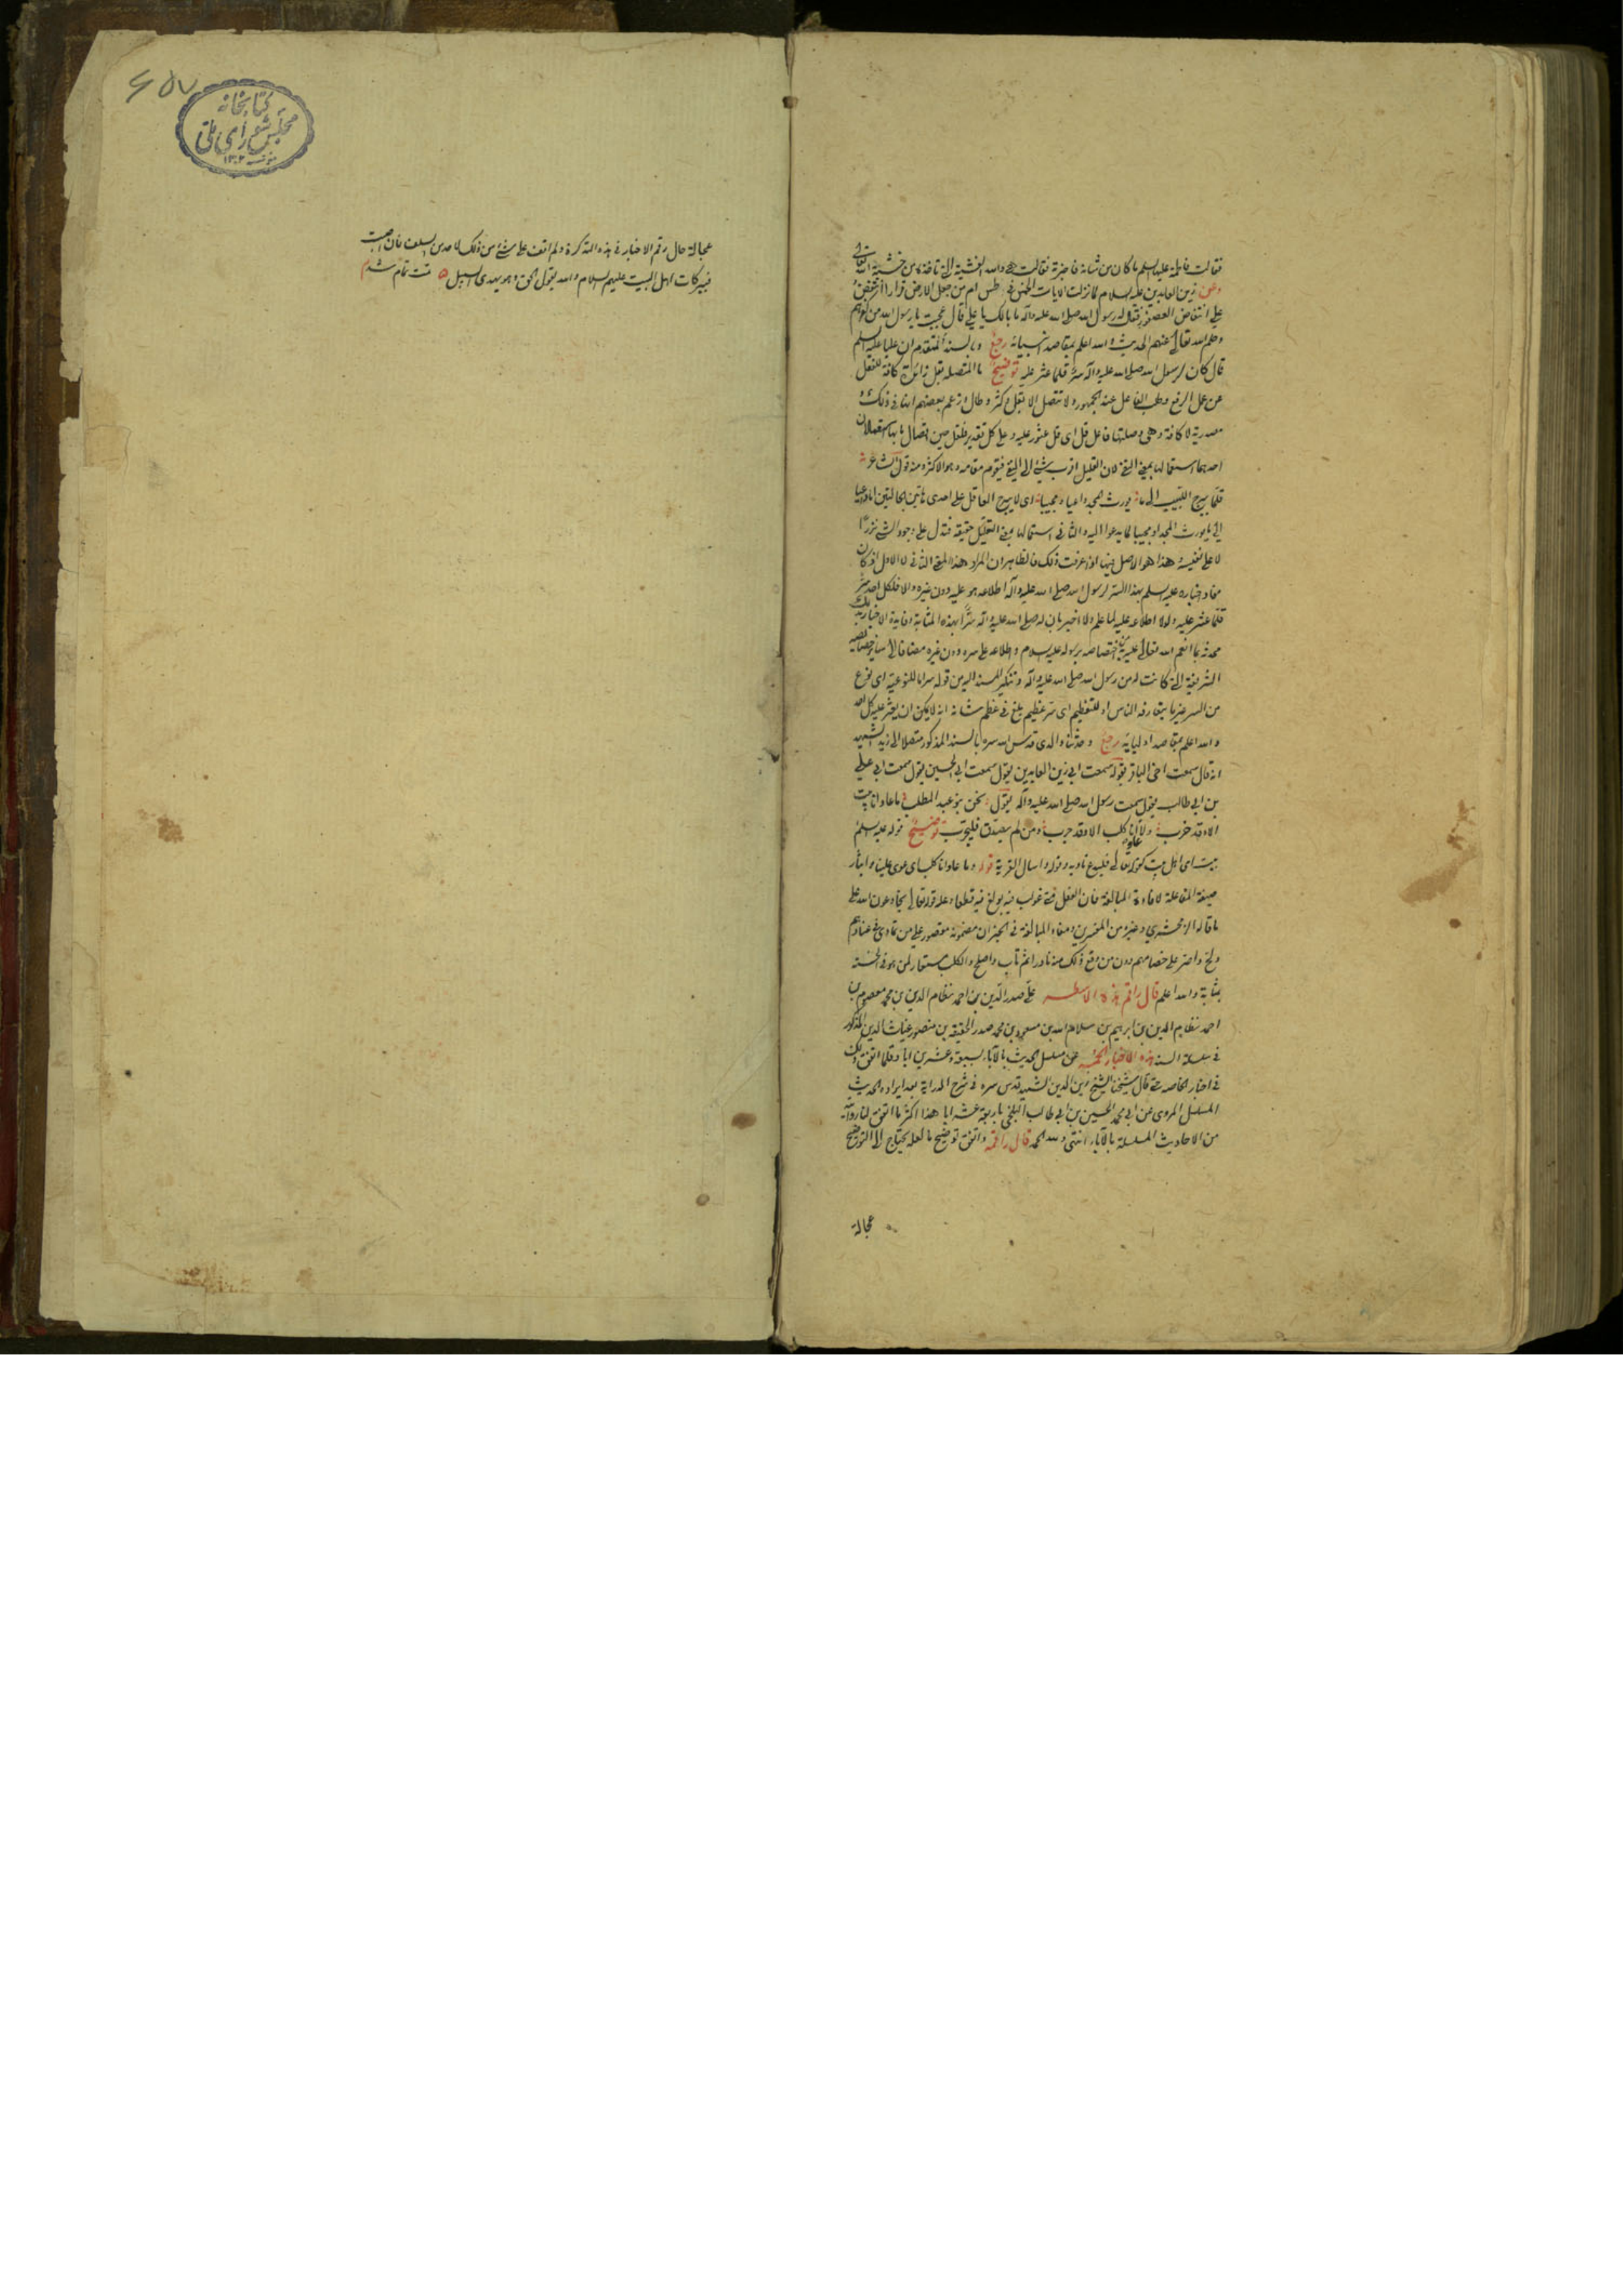 فقالت فاطمة عليها السلم ما كان من شانه فاخبرته فقالت هي والله الغشية التي تاخذه من خشية الله تعالى
وعن زين العابدين عليه السلام لما نزلت الايات الخمس في طس ام من جعل الارض قرارا انتفض
علي انتفاض العصفور فقال له رسول الله صلى الله عليه وآله ما بالك يا علي قال عجبت يا رسول الله من كفرهم
وحلم الله تعالى عنهم الحديث والله اعلم بمقاصد انبيائه رجع وبالسند المتقدم ان عليا عليه السلم
قال كان لرسول الله صلى الله عليه وآله سرّ قلما عثر عليه توضيح ما المتصلة بقل زائدة كافة للفعل
عن عمل الرفع وطلب الفاعل عند الجمهور ولا تتصل الا بقل وكثر وطال وزعم بعضهم انها في ذلك
مصدرية لا كافة وهي وصلتها فاعل قل اى قل عثور عليه وعلى كل تقدير فلقل حين اتصال ما بها استعمالان
احدهما استعمالها بمعنى النفي لان القليل اقرب شيء الى النفي فيقوم مقامه وهو الاكثر ومنه قول الشاعر
قلما يبرح اللبيب الى ما يورث المجد داعيا او مجيبا اى لا يبرح العاقل على احدى هاتين الحالتين اما داعيا
الى ما يورث المجد او مجيبا لما يدعوا اليه والثانى استعمالها بمعنى التقليل حقيقة فتدل على وجود الشيء نزرا
لا على نفيه وهذا هو الاصل فيها اذا عرفت ذلك فالظاهر ان المراد هنا المعنى الثانى لا الاول اذ كان
مفاد اخباره عليه السلم بهذا السر لرسول الله صلى الله عليه وآله اطلاعه هو عليه دون غيره والا فلكل احد سرّ
قلما عثر عليه ولولا اطلاعه عليه لما علم ولا اخبر بان له صلى الله عليه وآله سرّا بهذه المثابة وفايدة الاخبار بذلك
محدثه بما انعم الله تعالى عليه من اختصاصه برسوله عليه السلام واطلاعه على سره دون غيره مضافا الى ساير خصائصه
الشريفة التى كانت له من رسول الله صلى الله عليه وآله وتنكير المسند اليه من قوله سر اما للنوعية اى نوع
من السر غير ما يتعارفه الناس او للتعظيم اى سر عظيم بلغ في عظم شانه انه لا يمكن ان يعثر عليه كل احد
والله اعلم بمقاصد اوليائه رجع وحدثنا والدى قدس الله سره بالسند المذكور متصلا الى زيد الشهيد
انه قال سمعت اخى الباقر يقول سمعت ابى زين العابدين يقول سمعت ابى الحسين يقول سمعت ابى علي
بن ابى طالب يقول سمعت رسول الله صلى الله عليه وآله يقول نحن بنو عبد المطلب ما عادانا بيت
الا وقد خرب ولا عاوانا كلب الا وقد جرب ومن لم يصدق فليجرب توضيح قوله عليه السلم
بيت اى اهل بيت كقوله تعالى فليدع ناديه وقوله واسال القرية قوله وما عاوانا كلب اى عوى علينا وايثار
صيغة المفاعلة لافادة المبالغة فان الفعل متى غولب فيه بولغ فيه قطعا وعليه قوله تعالى يخادعون الله على
ما قاله الزمخشري وغيره من المفسرين ومفاد المبالغة في الخبر ان مضمونه مقصور على من تمادى في عنادهم
ولج واصر على خصامهم دون من وقع ذلك منه نادرا ثم تاب واصلح والكلب مستعار لمن هو في الخسة
بمثابة والله اعلم قال راقم هذه الاسطر علي صدر الدين بن احمد نظام الدين بن محمد معصوم بن
احمد نظام الدين بن ابراهيم بن سلام الله بن مسعود بن محمد صدر الحقيقة بن منصور غياث الدين المذكور
في سلسلة السند هذه الاخبار الخمسة من مسلسل الحديث بالآباء بسبعة وعشرين ابا وقلما اتفق ذلك
في اخبار الخاصة حتى قال شيخنا الشيخ زين الدين الشهيد قدس سره في شرح الدراية بعد ايراده الحديث
المسلسل المروى عن ابى محمد الحسين بن ابى طالب البلخى باربعة عشر ابا هذا اكثر ما اتفق لنا روايته
من الاحاديث المسلسلة بالآباء انتهى ولله الحمد قال راقمه واتفق توضيح ما لعله يحتاج الى التوضيح
عجالة
٤٥٧
كتابخانه
مجلس شوراى ملى
١٣٠٢
عجالة حال رقم الاخبار في هذه التذكرة ولم اقف على شيء من ذلك لاحد من السلف فان اصبت
فببركات اهل البيت عليهم السلام والله يقول الحق وهو يهدى السبيل تمت تمام شد